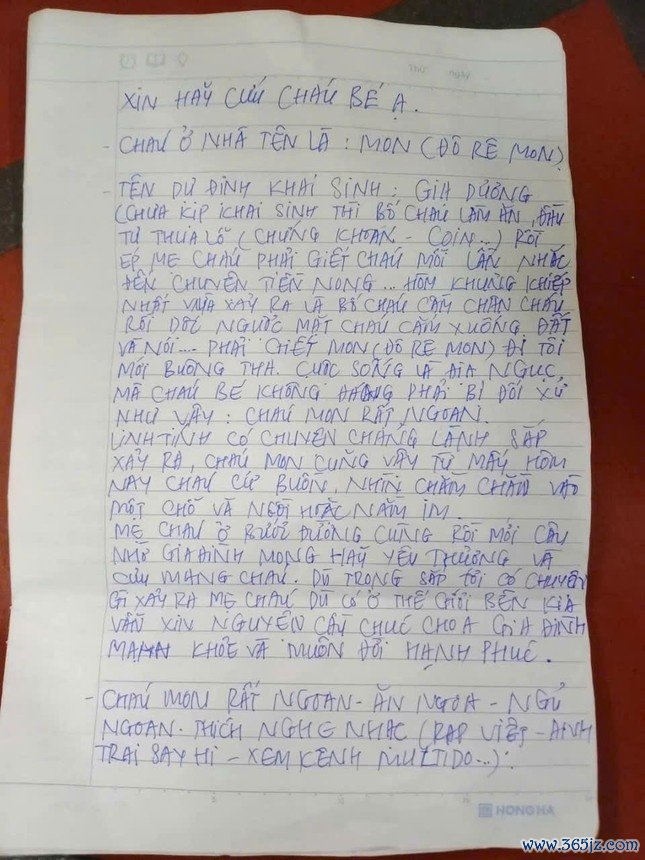 XIN HÃY CỨU CHÁU BÉ Ạ.
- CHÁU Ở NHÀ TÊN LÀ : MON (ĐÔ RÊ MON)
- TÊN DỰ ĐỊNH KHAI SINH : GIA DƯƠNG
(CHƯA KỊP KHAI SINH THÌ BỐ CHÁU LÀM ĂN, ĐẦU
TƯ THUA LỖ (CHỨNG KHOÁN - COIN...) RỒI
ÉP MẸ CHÁU PHẢI GIẾT CHÁU MỖI LẦN NHẮC
ĐẾN CHUYỆN TIỀN NONG ... HÔM KHỦNG KHIẾP
NHẤT VỪA XẢY RA LÀ BỐ CHÁU CẦM CHÂN CHÁU
RỒI DỐC NGƯỢC MẶT CHÁU CẮM XUỐNG ĐẤT
VÀ NÓI .... PHẢI CHẾT MON (ĐÔ RÊ MON) ĐI TÔI
MỚI BUÔNG THA. CUỘC SỐNG LÀ ĐỊA NGỤC
MÀ CHÁU BÉ KHÔNG ĐÁNG PHẢI BỊ ĐỐI XỬ
NHƯ VẬY : CHÁU MON RẤT NGOAN.
LINH TÍNH CÓ CHUYỆN CHẲNG LÀNH SẮP
XẢY RA, CHÁU MON CŨNG VẬY TỪ MẤY HÔM
NAY CHÁU CỨ BUỒN, NHÌN CHẰM CHẰM VÀO
MỘT CHỖ VÀ NGỒI HOẶC NẰM IM...
MẸ CHÁU Ở BƯỚC ĐƯỜNG CÙNG RỒI MỚI CẦU
NHỜ GIA ĐÌNH MONG HÃY YÊU THƯƠNG VÀ
CỨU MẠNG CHÁU. DÙ TRONG SẮP TỚI CÓ CHUYỆN
GÌ XẢY RA MẸ CHÁU DÙ CÓ Ở THẾ GIỚI BÊN KIA
VẪN XIN NGUYỆN CẦU CHÚC CHO A GIA ĐÌNH
MẠNH KHỎE VÀ MUÔN ĐỜI HẠNH PHÚC.
- CHÁU MON RẤT NGOAN - ĂN NGOA - NGỦ
NGOAN. THÍCH NGHE NHẠC (RAP VIỆT - ANH
TRAI SAY HI - XEM KÊNH MULTIDO...).
HONG HA
www.365jz.com